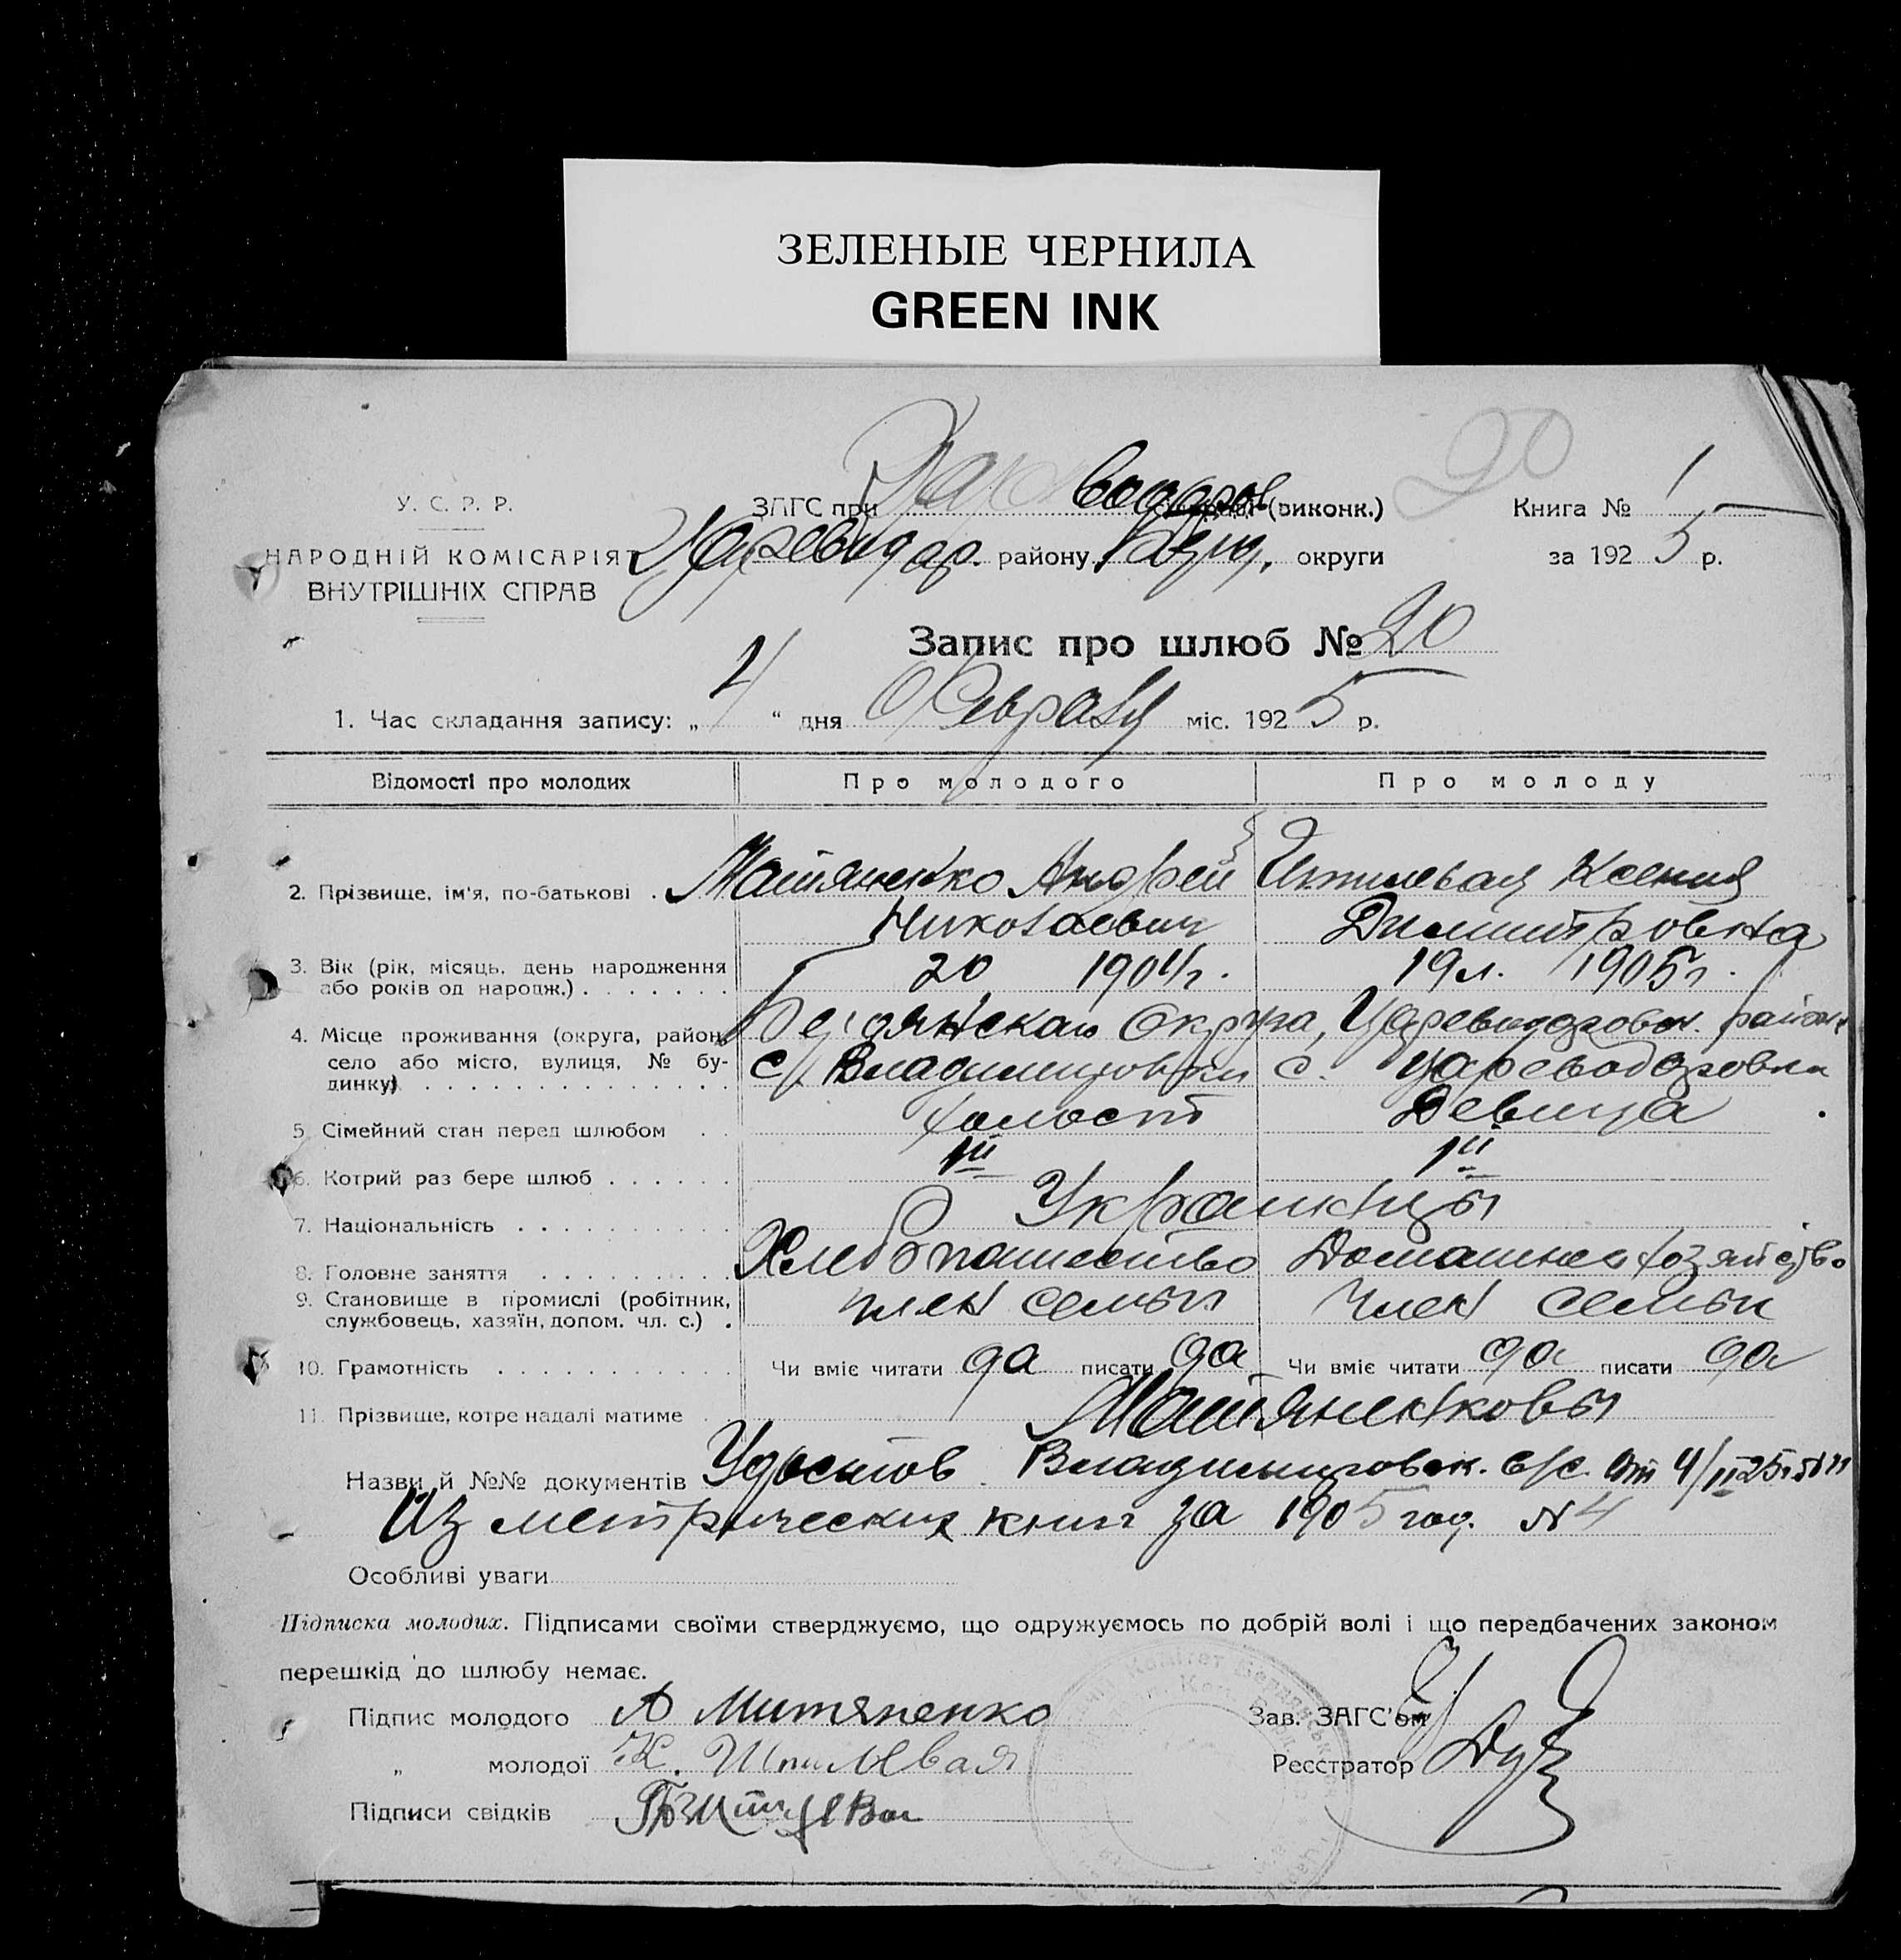 ЗЕЛЕНЫЕ ЧЕРНИЛА
GREEN INK
20
У. С. Р. Р.
ЗАГС при (виконк.)
Книга № 1
НАРОДНІЙ КОМІСАРІЯТ
ВНУТРІШНІХ СПРАВ
району округи
за 1925 р.
Запис про шлюб № 20
1. Час складання запису: „ 4 “ дня Февраля міс. 1925 р.
Відомості про молодих Про молодого Про молоду
2. Прізвище, ім'я, по-батькові . Митяненко Андрей Ксения
Николаевич Димитровна
3. Вік (рік, місяць, день народження 20 1904 г. 19 л. 1905 г.
або років од народж.) . . . . . . .
4. Місце проживання (округа, район, округа, район
село або місто, вулиця, № бу- с. Владимировки с. Цареводаровки
динку) . . . . . . . . . . . . . .
5. Сімейний стан перед шлюбом . . холост Девица
6. Котрий раз бере шлюб . . . . . . 1й 1й
7. Національність . . . . . . . . . . Украинцы
8. Головне заняття . . . . . . . . . Хлебопашество Домашнее хозяйство
9. Становище в промислі (робітник, член семьи член семьи
службовець, хазяїн, допом. чл. с.) .
10. Грамотність . . . . . . . . . . . Чи вміє читати да писати да Чи вміє читати да писати да
11. Прізвище, котре надалі матиме . Митяненковы
Назви й №№ документів Удостов. Владимировск. с/с. от 4/II 25 г.
Из метрических книг за 1905 год. № 4
Особливі уваги
Підписка молодих. Підписами своїми стверджуємо, що одружуємось по добрій волі і що передбачених законом
перешкід до шлюбу немає.
Підпис молодого А Митяненко
Зав. ЗАГС'ом
„ молодої К. Шпилевая
Реєстратор
Підписи свідків